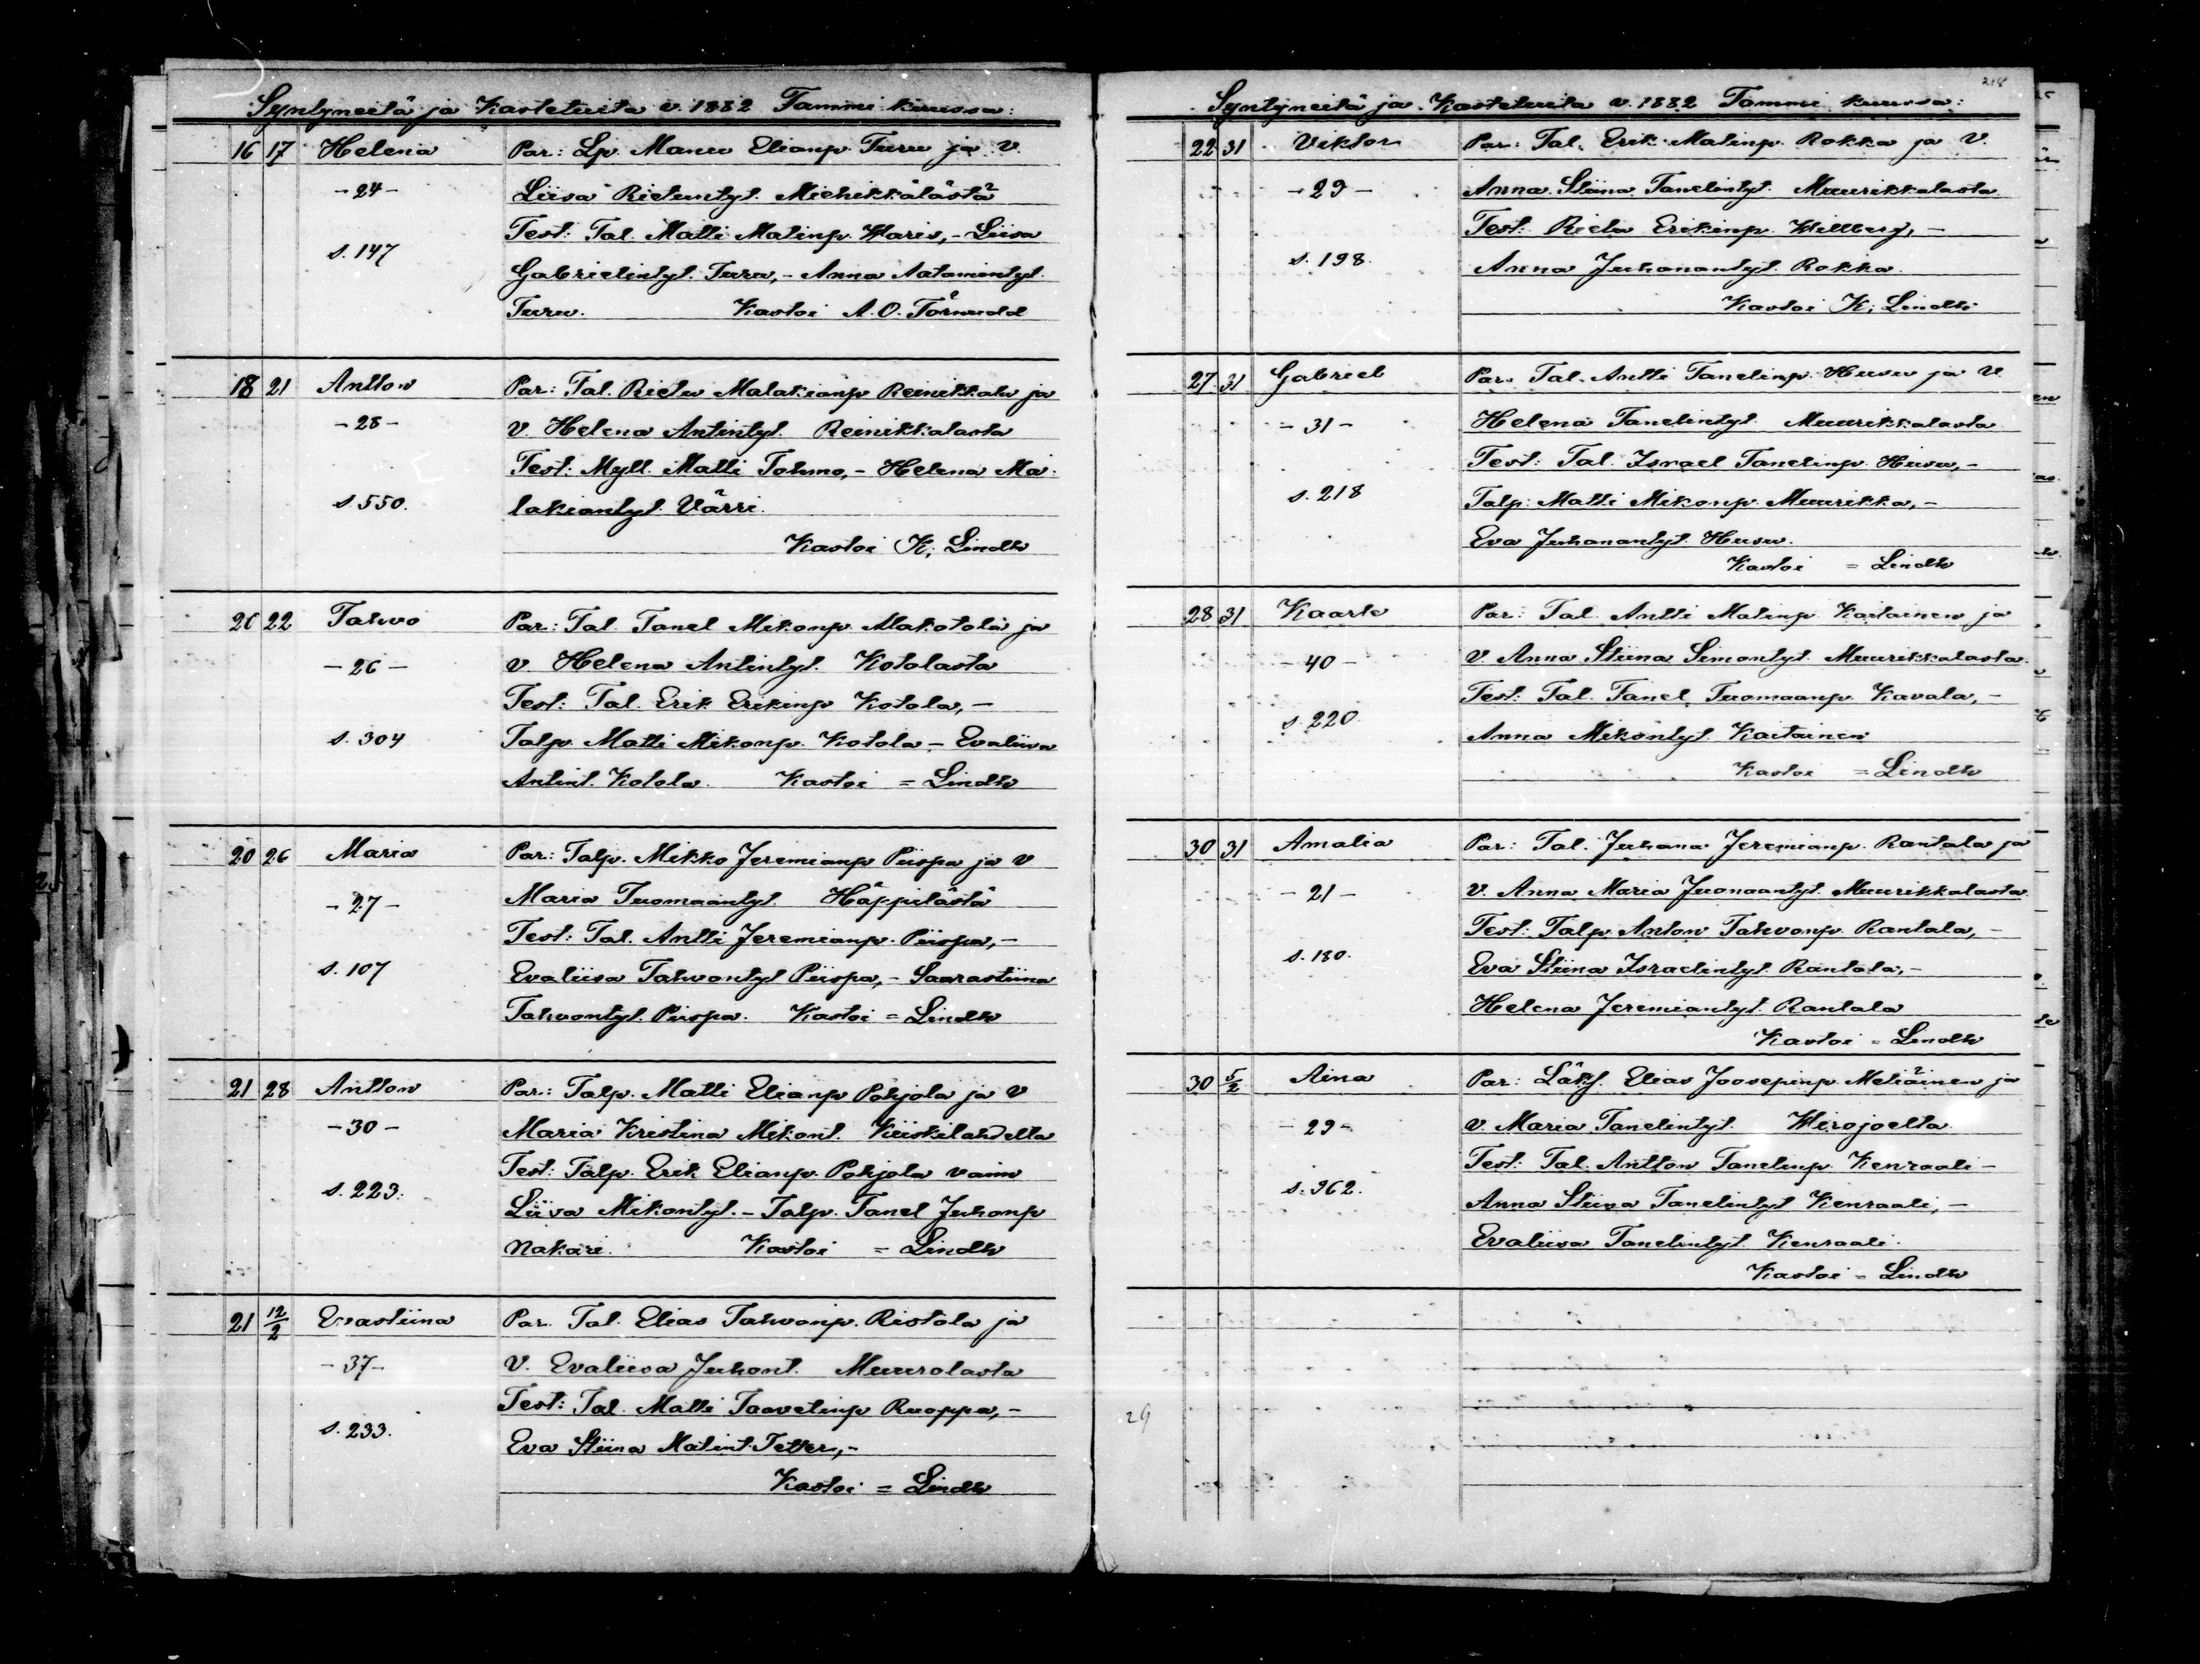 Syntyneitä ja Kastetuita v. 1882 Tammi kuussa:
16 17 Helena Par: Lp. Manu Elianp. Turu ja V.
- 24 - Liisa Rietuntyt. Miehikkälästä
Test: Tal. Matti Matinp. Waris, - Liisa
s. 147 Gabrielintyt. Turu, - Anna Aatamintyt.
Turu. Kastoi A. O. Törnudd
18 21 Antton Par: Tal. Rietu Malakianp Reinikkala ja
- 28 - V. Helena Antintyt. Reinikkalasta
Test: Myll. Matti Tohmo, - Helena Ma-
s 550. lakiantyt. Värri.
Kastoi K. Lindh
20 22 Tahvo Par: Tal. Tanel Mikonp. Alakotola ja
- 26 - V Helena Antintyt. Kotolasta
Test: Tal. Erik Erikinp Kotola, -
s. 304 Talp. Matti Mikonp. Kotola - Evaliisa
Antint. Kotola. Kastoi = Lindh
20 26 Maria Par: Talp. Mikko Jeremianp Piispa ja V
- 27 - Maria Tuomaantyt. Häppilästä
Test: Tal. Antti Jeremianp. Piispa, -
s. 107 Evaliisa Tahvontyt Piispa, - Saarastiina
Tahvontyt. Piispa. Kastoi = Lindh
21 28 Antton Par: Talp. Matti Elianp Pohjola ja V
- 30 - Maria Kristina Mikont. Kiiskilahdelta
Test: Talp. Erik Elianp. Pohjola vaim
s. 223. Liisa Mikontyt. - Talp. Tanel Juhonp
Nakari. Kastoi = Lindh
21 12/2 Evastiina Par. Tal. Elias Tahvonp. Ristola ja
- 37 - V. Evaliisa Juhont. Muurolasta
Test: Tal. Matti Taavetinp Ruoppa, -
s. 233. Eva Stiina Matint. Tetter, -
Kastoi = Lindh
218
Syntyneitä ja Kastetuita v. 1882 Tammi kuussa:
22 31 Viktor Par: Tal. Erik Matinp. Rokka ja V.
- 29 - Anna Stiina Tanelintyt. Muurikkalasta
Test: Rietu Erikinp. Willberg, -
s. 198. Anna Juhanantyt. Rokka.
Kastoi K. Lindh
27 31 Gabriel Par. Tal. Antti Tanelinp. Husu ja V.
- 31 - Helena Tanelintyt. Muurikkalasta
Test: Tal. Israel Tanelinp. Husu, -
s. 218 Talp: Matti Mikonp. Muurikka, -
Eva Juhanantyt. Husu.
Kastoi = Lindh
28 31 Kaarle Par: Tal. Antti Matinp. Kaitainen ja
- 40 - V. Anna Stiina Simontyt. Muurikkalasta.
Test: Tal. Tanel Tuomaanp. Kavala, -
s. 220. Anna Mikontyt. Kaitainen
Kastoi = Lindh
30 31 Amalia Par: Tal. Juhana Jeremianp. Rantala ja
- 21 - V. Anna Maria Juonaantyt. Muurikkalasta.
Test: Talp. Anton Tahvonp. Rantala, -
s. 180. Eva Stiina Israelintyt. Rantala, -
Helena Jeremiantyt. Rantala
Kastoi = Lindh
30 5/2 Aina Par: Läks. Elias Joosepinp. Meliäinen ja
- 29 - V. Maria Tanelintyt. Wirojoelta
Test: Tal. Antton Tanelinp. Kenraali -
s. 362. Anna Stiina Tanelintyt Kenraali, -
Evaliisa Tanelintyt. Kenraali.
Kastoi = Lindh
29